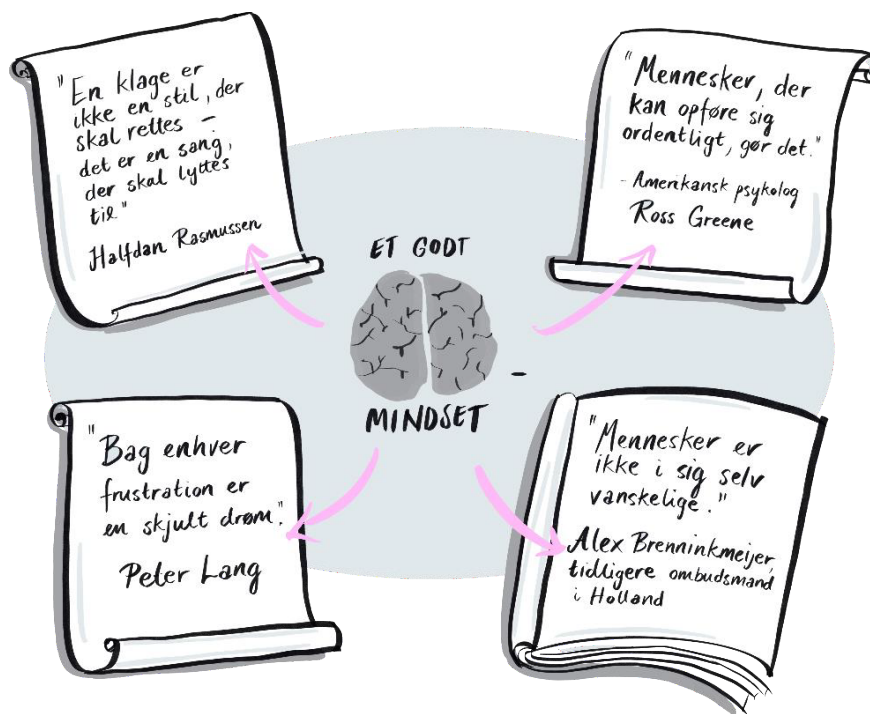 "En klage er
ikke en stil, der
skal rettes –
det er en sang,
der skal lyttes
til"
Halfdan Rasmussen
"Mennesker, der
kan opføre sig
ordentligt, gør det."
- Amerikansk psykolog
Ross Greene
ET GODT
MINDSET
"Bag enhver
frustration er
en skjult drøm".
Peter Lang
"Mennesker er
ikke i sig selv
vanskelige."
Alex Brenninkmeijer,
tidligere ombudsmand
i Holland